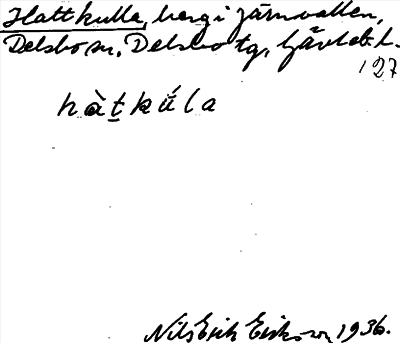 Hattkulla, berg i Järnvallen,
Delsbo sn, Delsbo tg, Gävleb. l.
127
hàt̲kúla
Nils Erik Eriksson 1936.